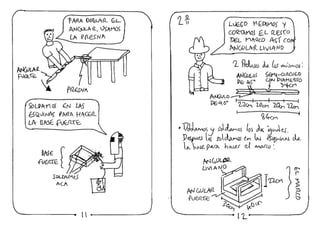 PARA DOBLAR EL
ANGULAR, USAMOS
LA PRENSA
ANGULAR
FUERTE
PRENSA
SOLDAMOS EN LAS
ESQUINAS PARA HACER
LA BASE FUERTE
BASE
FUERTE
SOLDAMOS
ACA
11
2º
LUEGO MEDIMOS Y
CORTAMOS EL RESTO
DEL MARCO ASÍ CON
ANGULAR LIVIANO
2 Pedazos de los mismos:
ANGULOS
DE 45°
SEMI-CIRCULO
CON DIAMETRO
3/4cm
ANGULO
DE 90°
22cm 20cm 20cm 22cm
84cm
• Doblamos y soldamos los dos iguales.
Despues se soldamos en las esquinas de
la base para hacer el marco:
ANGULAR
LIVIANO
ANGULAR
FUERTE
22cm
EL MARCO
20cm
40cm
12